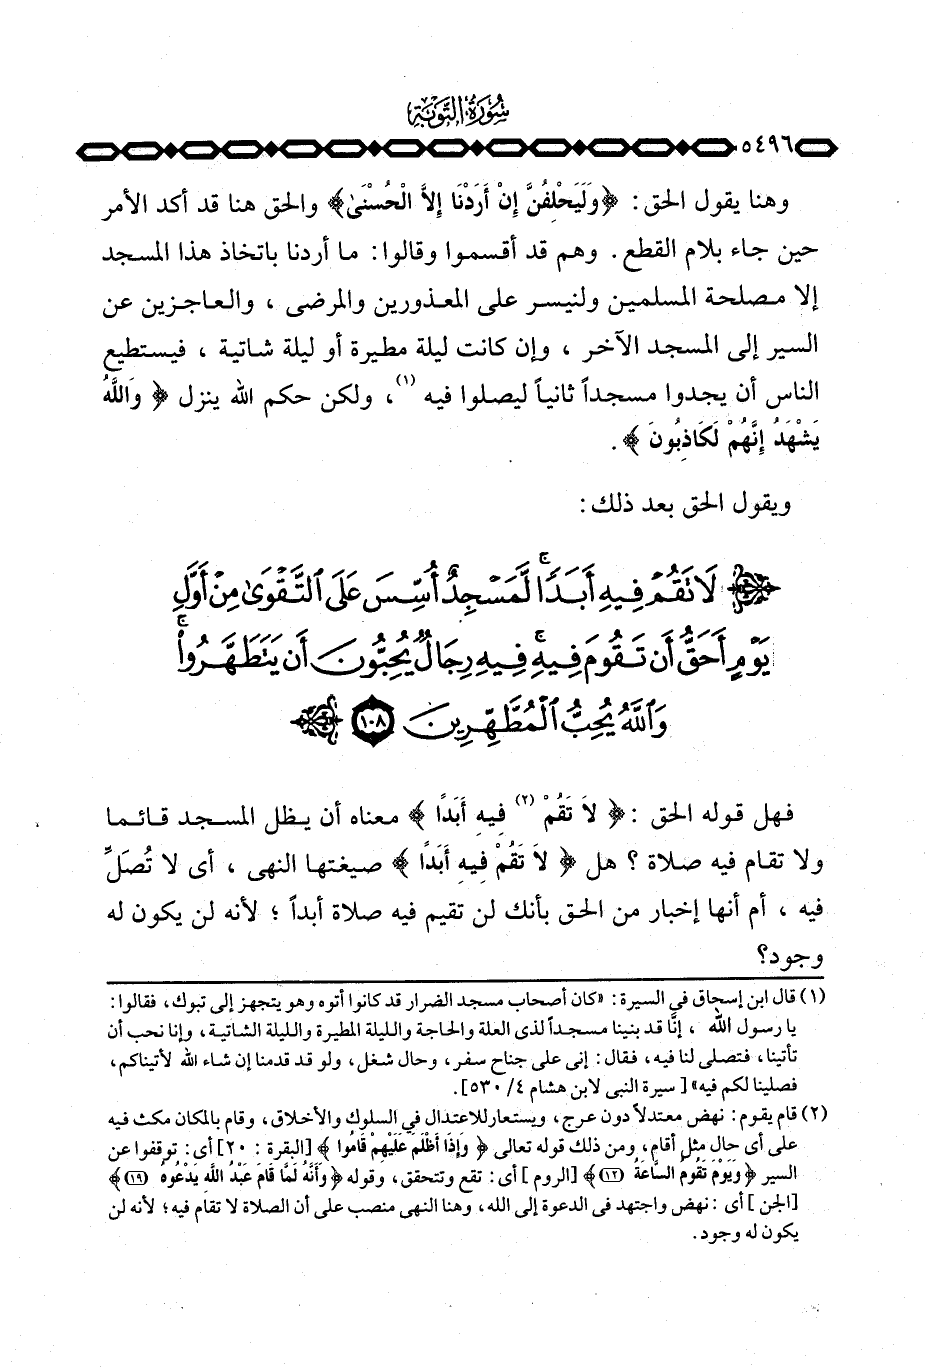 سُورَةُ التَّوْبَةِ
٥٤٩٦
وهنا يقول الحق : ﴿وَلَيَحْلِفُنَّ إِنْ أَرَدْنَا إِلاَّ الْحُسْنَىٰ﴾ والحق هنا قد أكد الأمر
حين جاء بلام القطع . وهم قد أقسموا وقالوا : ما أردنا باتخاذ هذا المسجد
إلا مصلحة المسلمين ولنيسر على المعذورين والمرضى ، والعاجزين عن
السير إلى المسجد الآخر ، وإن كانت ليلة مطيرة أو ليلة شاتية ، فيستطيع
الناس أن يجدوا مسجداً ثانياً ليصلوا فيه (١)، ولكن حكم الله ينزل ﴿ وَاللَّهُ
يَشْهَدُ إِنَّهُمْ لَكَاذِبُونَ ﴾ .
ويقول الحق بعد ذلك :
لَا تَقُمْ فِيهِ أَبَدًا ۚ لَّمَسْجِدٌ أُسِّسَ عَلَى ٱلتَّقْوَىٰ مِنْ أَوَّلِ
يَوْمٍ أَحَقُّ أَن تَقُومَ فِيهِ ۚ فِيهِ رِجَالٌ يُحِبُّونَ أَن يَتَطَهَّرُوا۟ ۚ
وَٱللَّهُ يُحِبُّ ٱلْمُطَّهِّرِينَ ١٠٨
فهل قوله الحق :﴿ لاَ تَقُمْ (٢) فِيهِ أَبَدًا ﴾ معناه أن يظل المسجد قائما
ولا تقام فيه صلاة ؟ هل ﴿ لاَ تَقُمْ فِيهِ أَبَدًا ﴾ صيغتها النهى ، أى لا تُصَلِّ
فيه ، أم أنها إخبار من الحق بأنك لن تقيم فيه صلاة أبداً ؛ لأنه لن يكون له
وجود؟
(١) قال ابن إسحاق فى السيرة : «كان أصحاب مسجد الضرار قد كانوا أتوه وهو يتجهز إلى تبوك، فقالوا:
يا رسول الله ، إنَّا قد بنينا مسجداً لذى العلة والحاجة والليلة المطيرة والليلة الشاتية، وإنا نحب أن
تأتينا، فتصلى لنا فيه، فقال: إنى على جناح سفر، وحال شغل، ولو قد قدمنا إن شاء الله لأتيناكم،
فصلينا لكم فيه» [ سيرة النبى لابن هشام ٤/ ٥٣٠].
(٢) قام يقوم : نهض معتدلاً دون عرج، ويستعار للاعتدال فى السلوك والأخلاق، وقام بالمكان مكث فيه
على أى حال مثل أقام، ومن ذلك قوله تعالى ﴿ وَإِذَا أَظْلَمَ عَلَيْهِمْ قَامُوا ﴾ [البقرة : ٢٠] أى: توقفوا عن
السير ﴿وَيَوْمَ تَقُومُ السَّاعَةُ (١٢)﴾ [الروم ] أى: تقع وتتحقق، وقوله ﴿وَأَنَّهُ لَمَّا قَامَ عَبْدُ اللَّهِ يَدْعُوهُ (١٩)﴾
[الجن ] أى : نهض واجتهد فى الدعوة إلى الله، وهنا النهى منصب على أن الصلاة لا تقام فيه؛ لأنه لن
يكون له وجود.